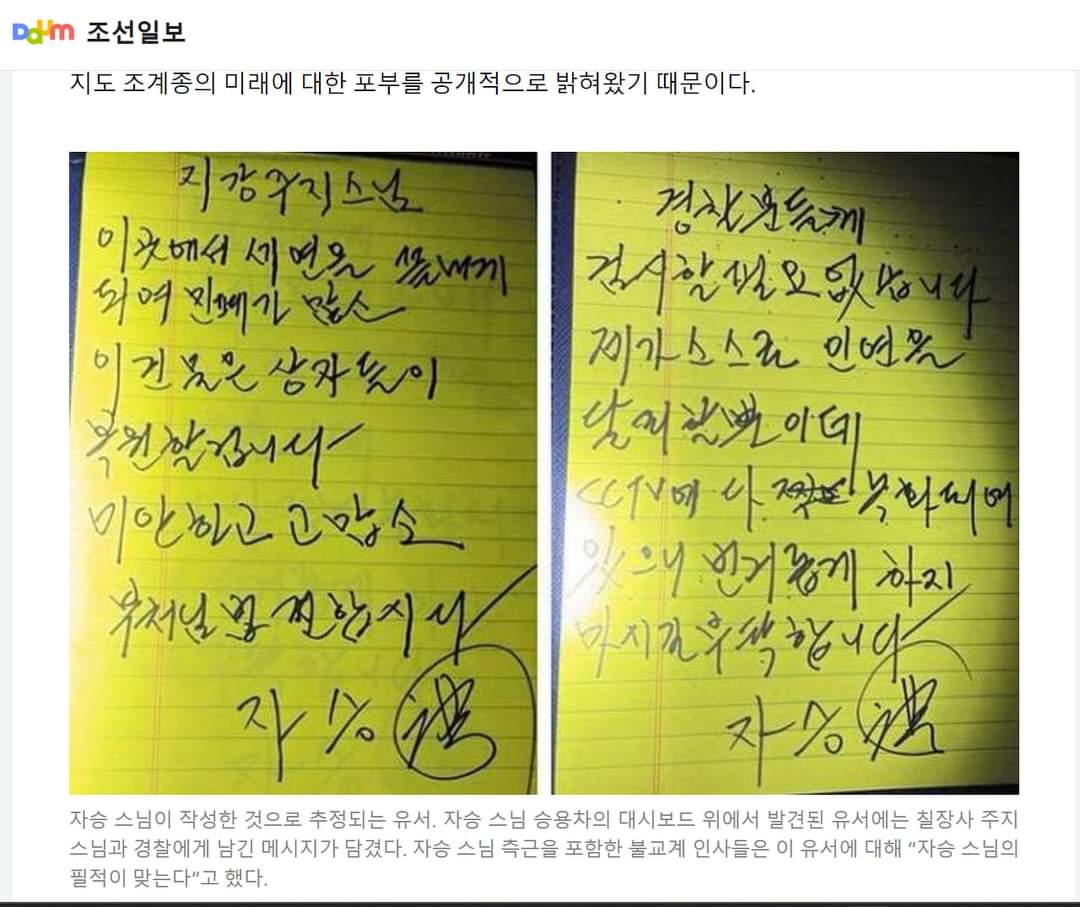 Daum 조선일보
지도 조계종의 미래에 대한 포부를 공개적으로 밝혀왔기 때문이다.
지강주지스님
이곳에서 세연을 끝내게
되어 민폐가 많소
이 건물은 상자들이
복원할겁니다
미안하고 고맙소
부처님 잘 전합시다
자승
경찰분들께
검시할 필요 없습니다
제가 스스로 인연을
달리할 뿐이데
CCTV에 다 녹화되어
있으니 번거롭게 하지
마시길 부탁합니다
자승
자승 스님이 작성한 것으로 추정되는 유서. 자승 스님 승용차의 대시보드 위에서 발견된 유서에는 칠장사 주지
스님과 경찰에게 남긴 메시지가 담겼다. 자승 스님 측근을 포함한 불교계 인사들은 이 유서에 대해 “자승 스님의
필적이 맞는다”고 했다.